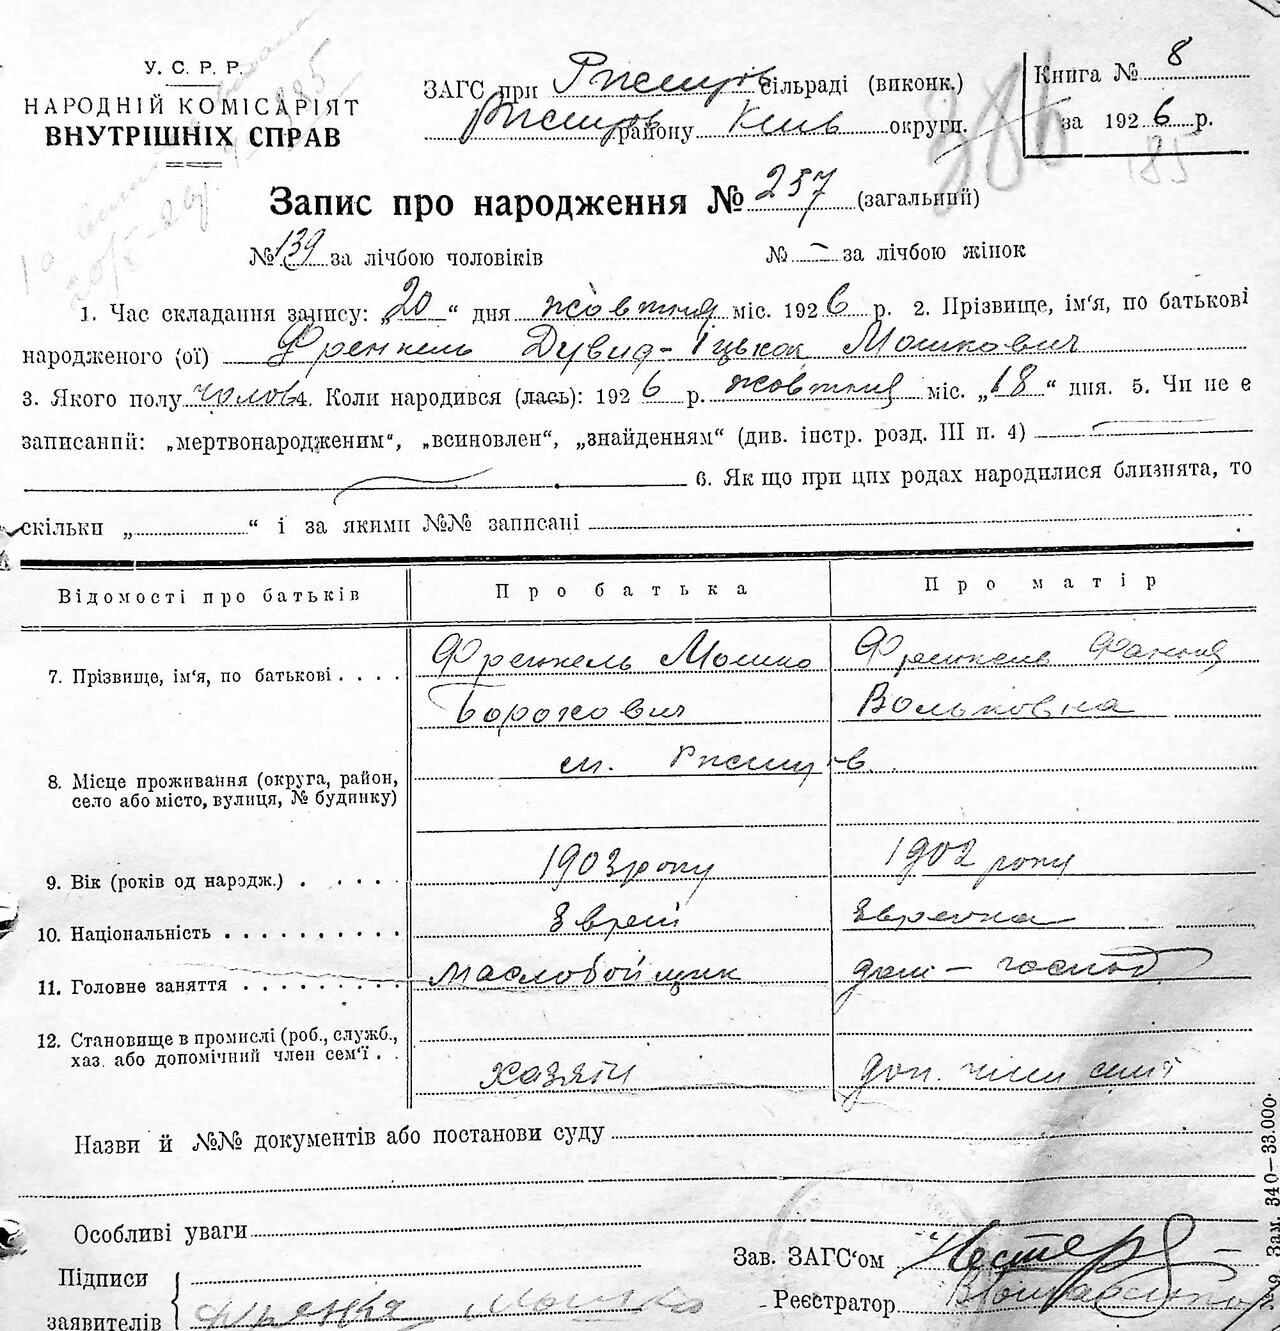 У. С. Р. Р.
НАРОДНІЙ КОМІСАРІЯТ
ВНУТРІШНІХ СПРАВ
ЗАГС при Ржищев сільраді (виконк.)
Ржищев району Київ округи.
Книга № 8
за 1926 р.
386
185
Запис про народження № 257 (загальний)
№ 139 за лічбою чоловіків № – за лічбою жінок
1. Час складання запису: „20“ дня жовтня міс. 1926 р. 2. Прізвище, ім‘я, по батькові
народженого (ої) Френкель Дувид-Іцькок Мошкович
3. Якого полу чолов 4. Коли народився (лась): 1926 р. жовтня міс. „18“ дня. 5. Чи не є
записаний: „мертвонародженим“, „всиновлен“, „знайденням“ (див. інстр. розд. III п. 4)
6. Як що при цих родах народилися близнята, то
скільки „ “ і за якими №№ записані
Відомості про батьків Про батька Про матір
7. Прізвище, ім‘я, по батькові . . . . Френкель Мошко Френкель Фания
Борохович Вольковна
8. Місце проживання (округа, район, м. Ржищів
село або місто, вулиця, № будинку)
9. Вік (років од народж.) . . . . . 1903 року 1902 року
10. Національність . . . . . . . . . . Єврей Єврейка
11. Головне заняття . . . . . . . . . маслобойщик дом-господ
12. Становище в промислі (роб., служб.,
хаз. або допомічний член сем‘ї . . хазяїн доп. член сімї
Назви й №№ документів або постанови суду
Особливі уваги
Зав. ЗАГС‘ом
Підписи
заявителів Френкель Мошко
Реєстратор
№ 9. Зам. 340—33.000.